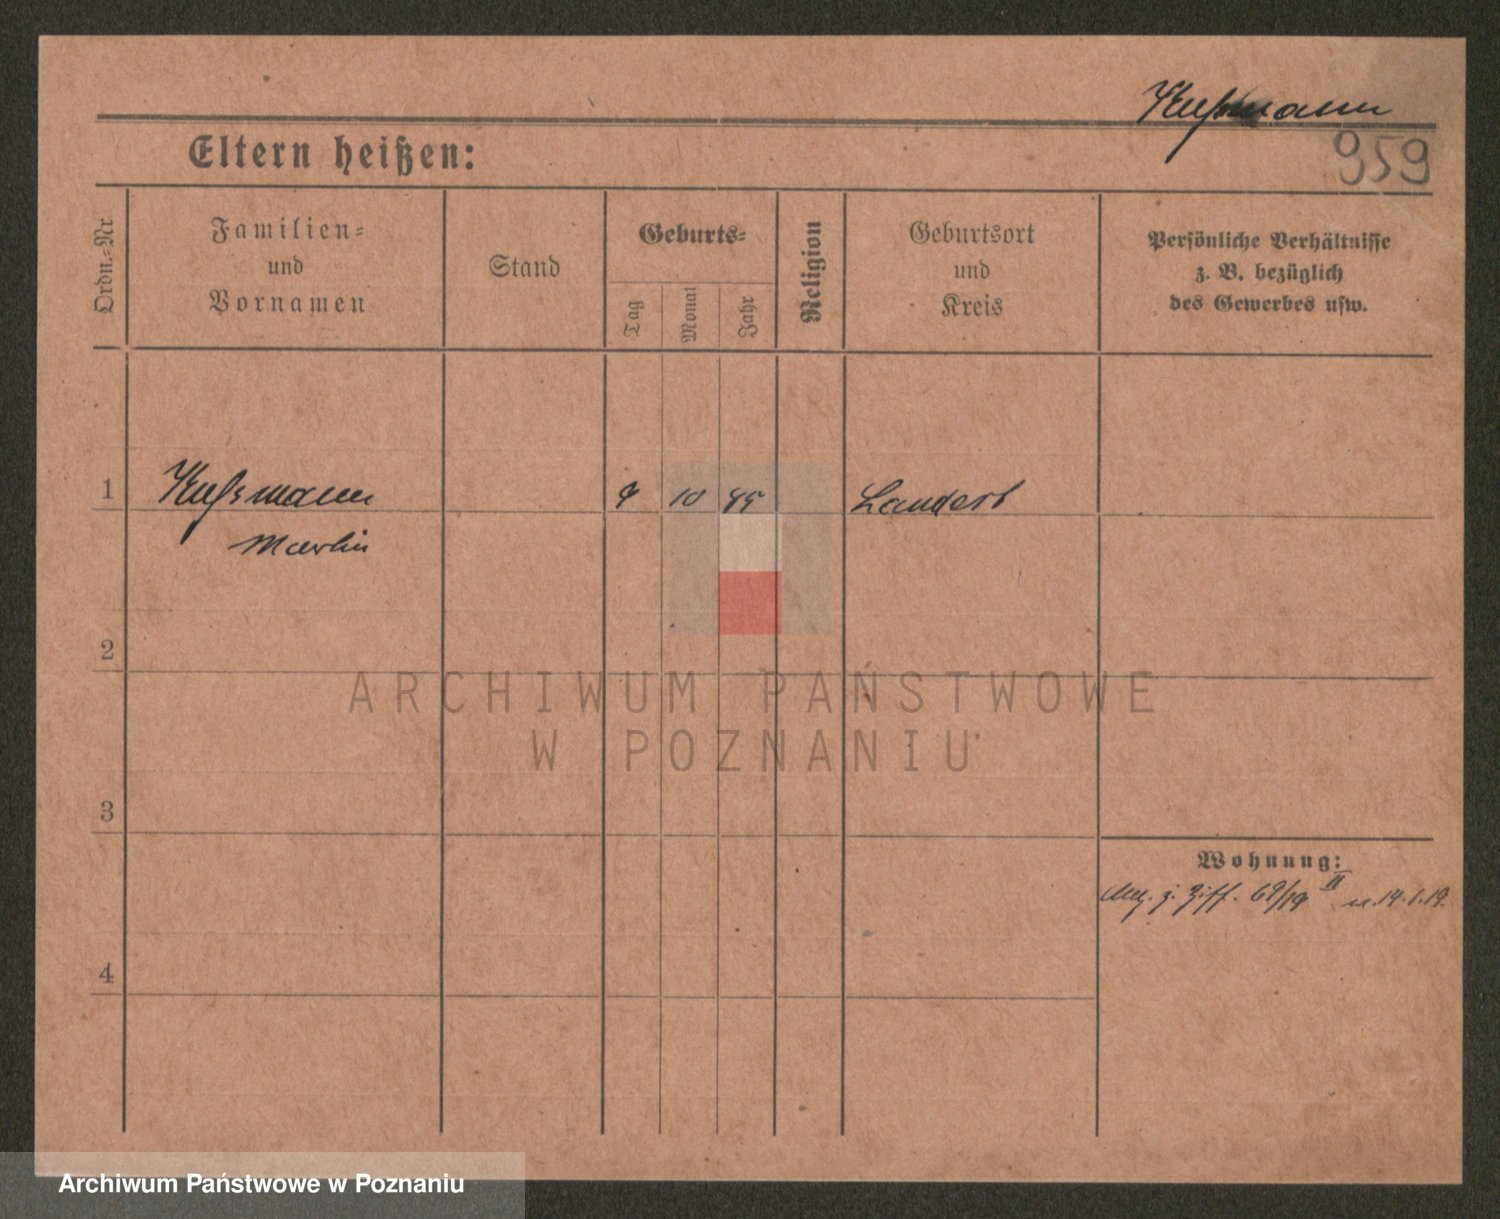 Kußmann
Eltern heißen:
959
Ordn.-Nr
Familien-
und
Vornamen
Stand
Geburts-
Tag
Monat
Jahr
Religion
Geburtsort
und
Kreis
Persönliche Verhältnisse
z. B. bezüglich
des Gewerbes usw.
1
Kußmann
10
Martin
2
ARCHIWUM PAŃSTWOWE
W POZNANIU
3
Wohnung:
z. Ziff. 69/19 II v. 14.1.19.
4
Archiwum Państwowe w Poznaniu